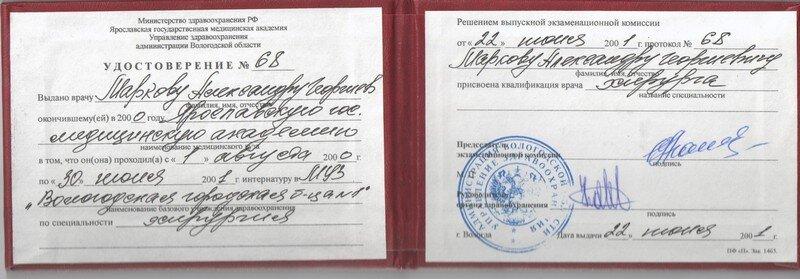 Министерство здравоохранения РФ
Ярославская государственная медицинская академия
Управление здравоохранения
администрации Вологодской области
УДОСТОВЕРЕНИЕ № 68
Выдано врачу Маркову Александру Георгиев
фамилия, имя, отчество
окончившему(ей) в 2000 году Ярославскую гос.
медицинскую академию
наименование медицинского вуза
в том, что он(она) проходил(а) с "1" августа 2000 г.
по "30" июня 2001 г интернатуру в МУЗ
"Вологодская городская б-ца №1"
наименование базового учреждения здравоохранения
по специальности хирургия
Решением выпускной экзаменационной комиссии
от "22" июня 2001 г. протокол № 68
Маркову Александру Георгиевичу
фамилия, имя, отчество
присвоена квалификация врача хирурга
название специальности
Председатель
экзаменационной комиссии
подпись
Руководитель
органа здравоохранения
подпись
г. Вологда
Дата выдачи "22" июня 2001 г.
ПФ «П». Зак. 1465.